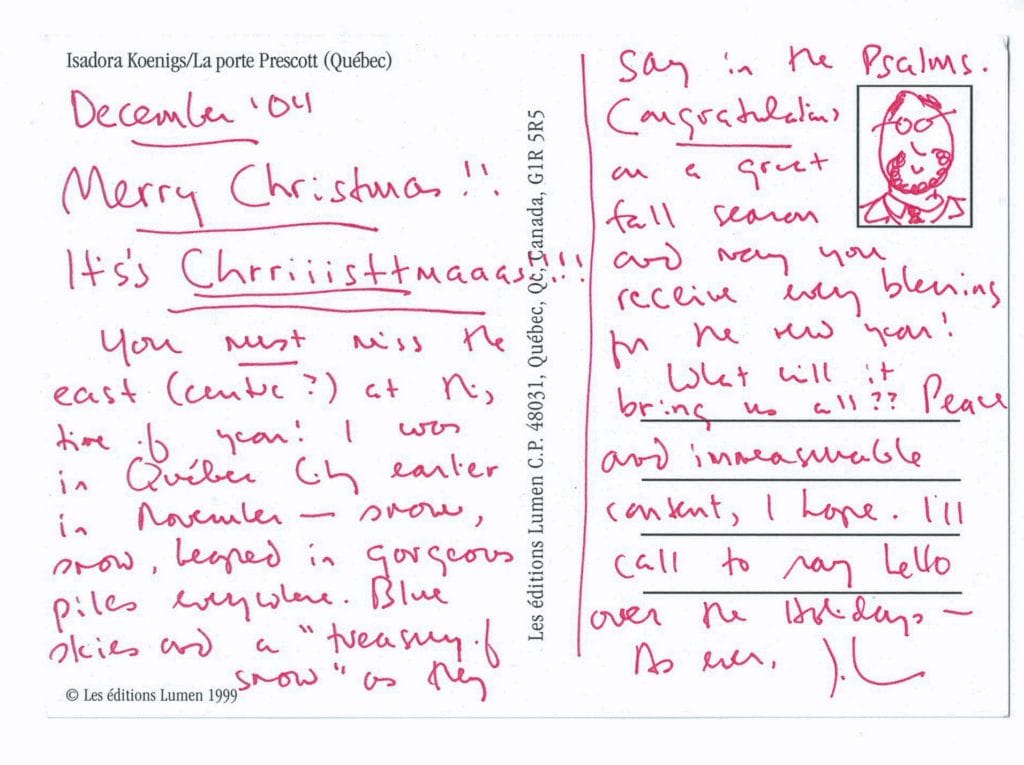 Isadora Koenigs/La porte Prescott (Québec)
December '04
Merry Christmas!!
It's's Chrriiisttmaaas!!!!
You must miss the
east (centre?) at this
time of year! I was
in Québec City earlier
in November — snow,
snow, heaped in gorgeous
piles everywhere. Blue
skies and a "treasury of
snow" as they
© Les éditions Lumen 1999
Les éditions Lumen C.P. 48031, Québec, Qc, Canada, G1R 5R5
say in the Psalms.
Congratulations
on a great
fall season
and may you
receive every blessing
for the new year!
What will it
bring us all?? Peace
and immeasurable
content, I hope. I'll
call to say hello
over the Holidays —
As ever, J.L